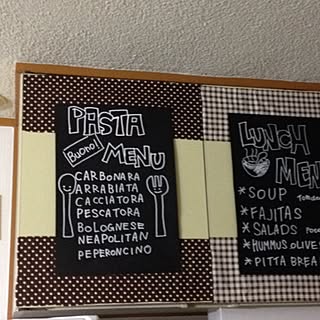 PASTA
Buono!
MENU
CARBONARA
ARRABIATA
CACCIATORA
PESCATORA
BOLOGNESE
NEAPOLITAN
PEPERONCINO
LUNCH
MEN
*SOUP
*FAJITAS
*SALADS
*HUMMUS OLIVE
*PITTA BREA